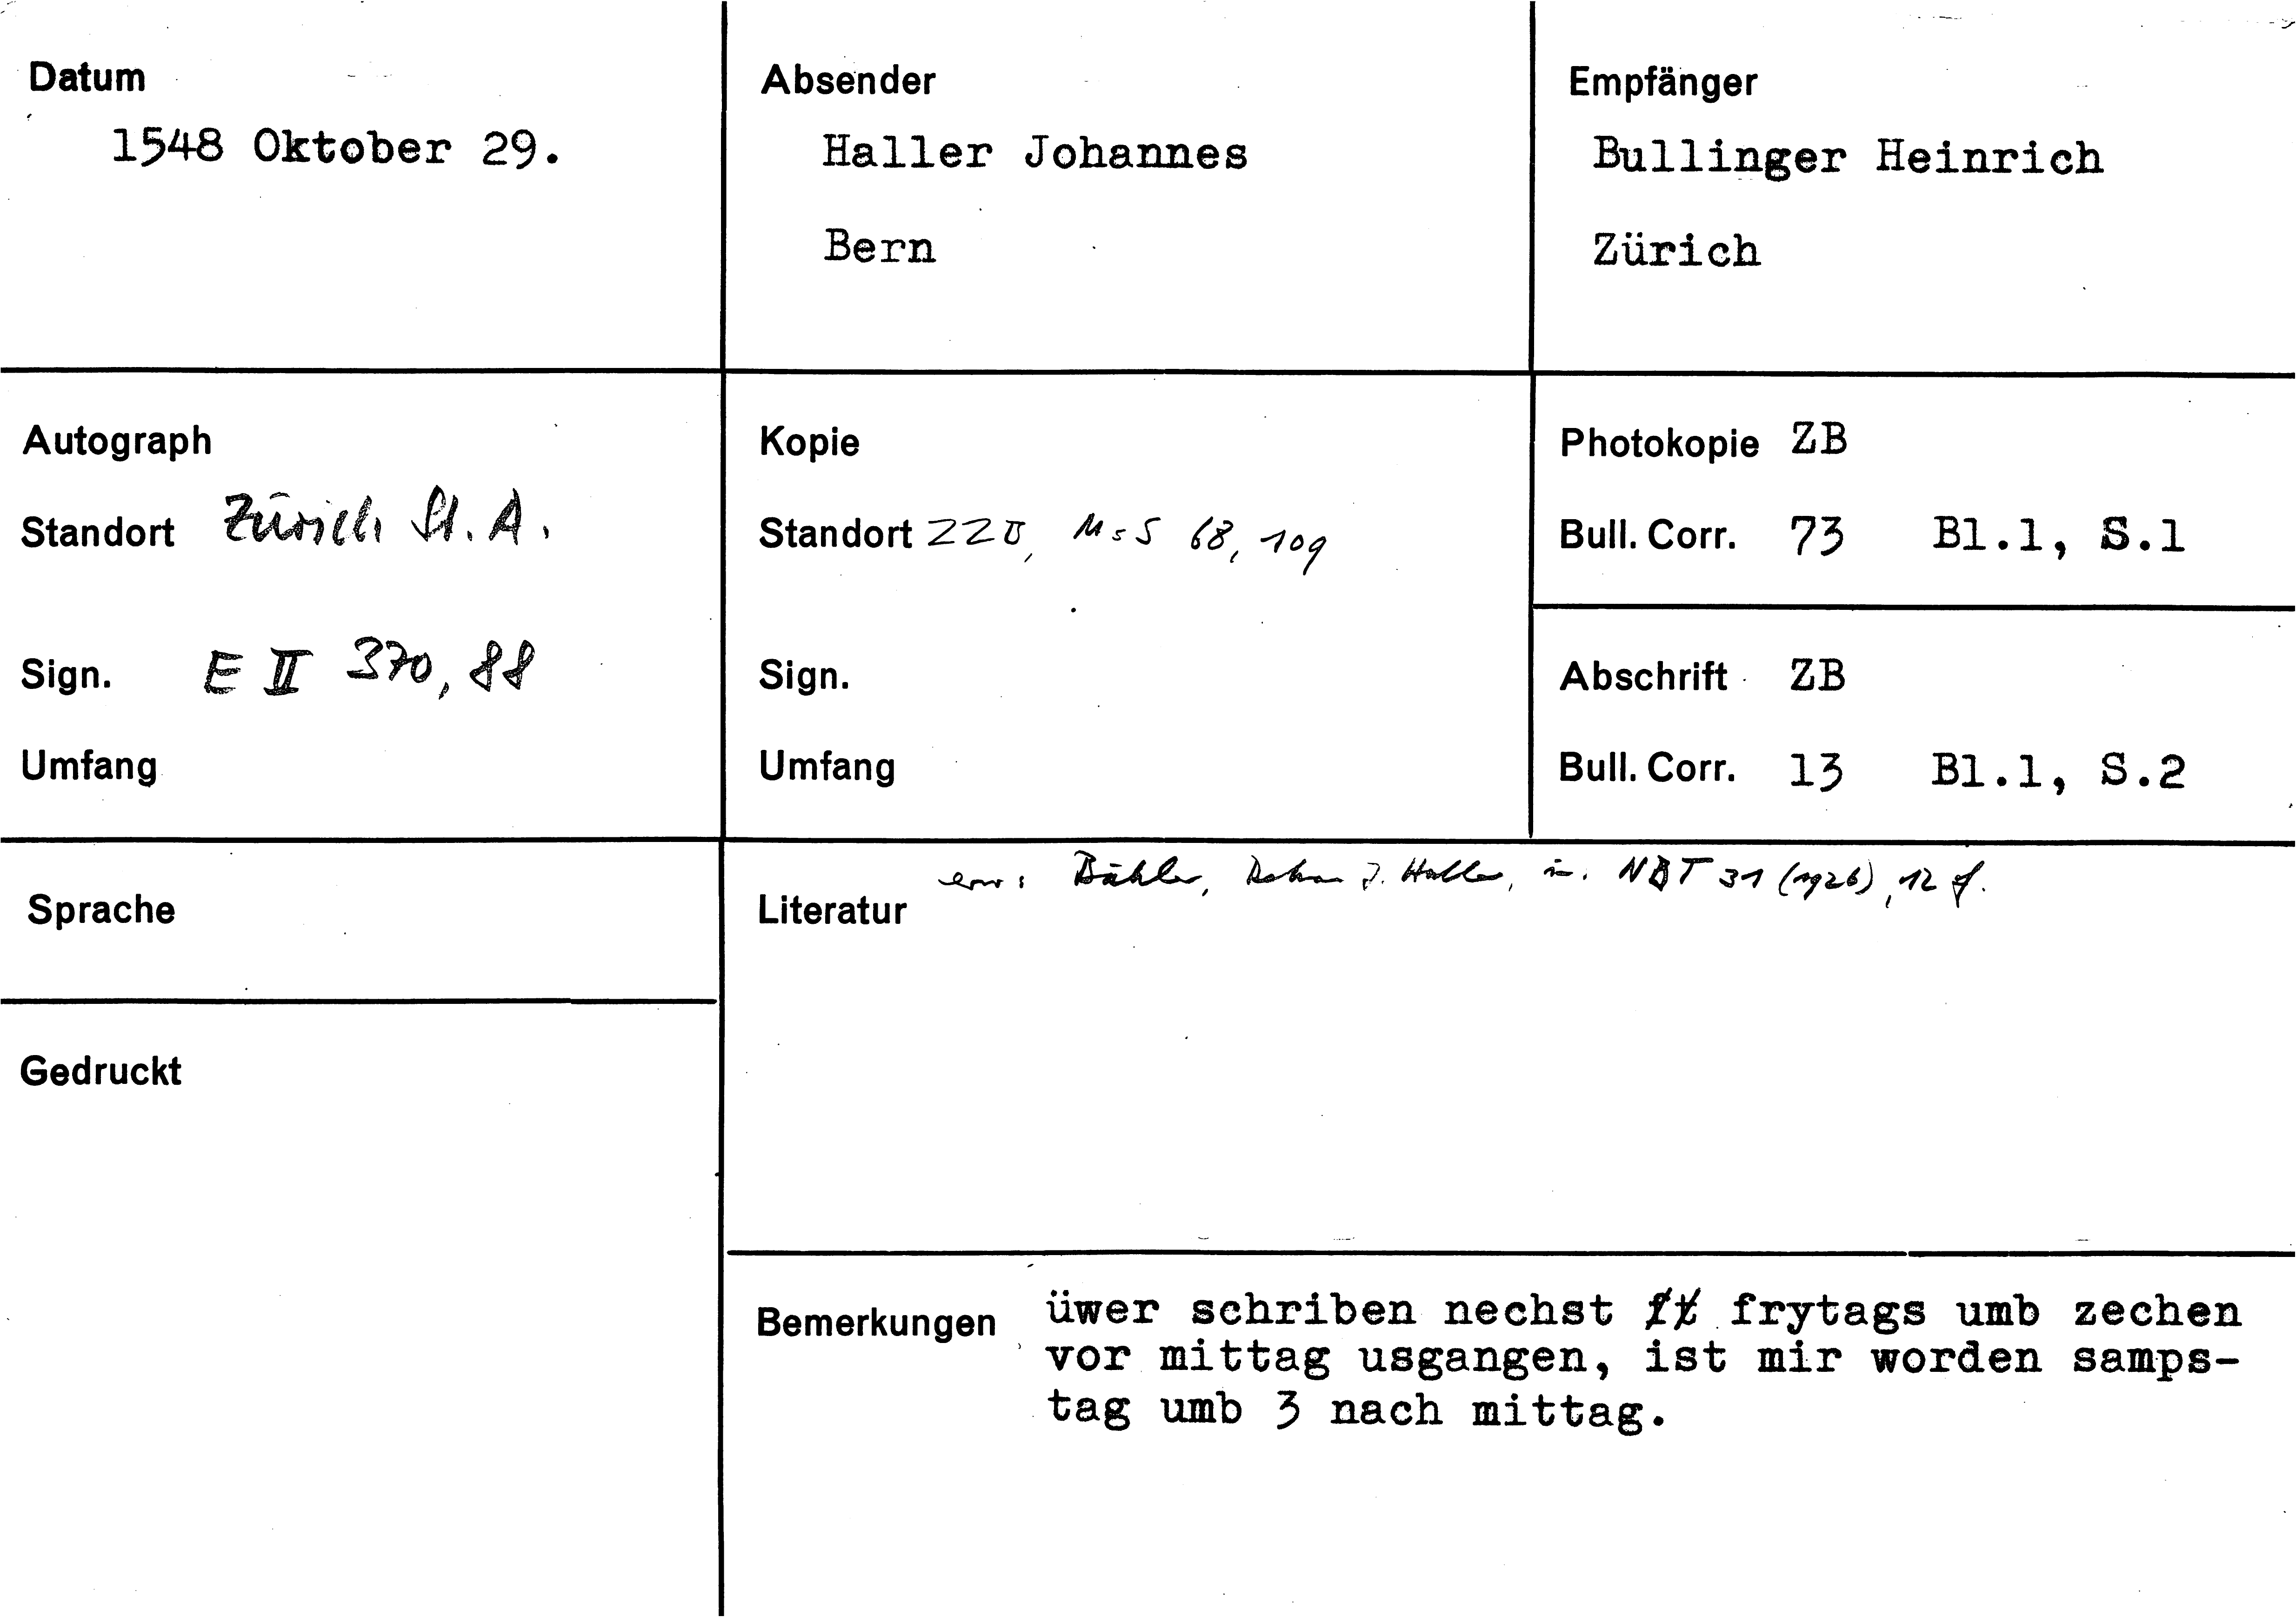 Datum
1548 Oktober 29.
Absender
Haller Johannes
Bern
Empfänger
Bullinger Heinrich
Zürich
Autograph
Standort Zürich St. A.
Sign. E II 370, 88
Umfang
Kopie
Standort ZZB, MsS 68, 109
Sign.
Umfang
Photokopie ZB
Bull. Corr. 73 Bl.1, S.1
Abschrift ZB
Bull. Corr. 13 Bl.1, S.2
Sprache
Gedruckt
Literatur
erw: Bähler, Dekan J. Haller, in: NBT 31 (1926), 12 f.
Bemerkungen
üwer schriben nechst frytags umb zechen
vor mittag usgangen, ist mir worden samps-
tag umb 3 nach mittag.